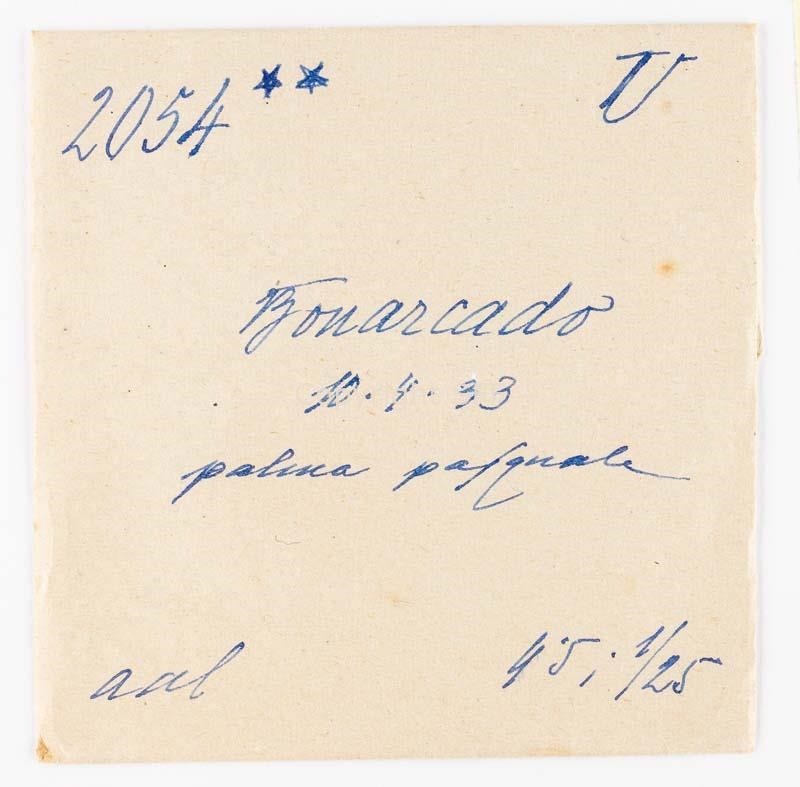 2054** U
Bonarcado
10.4.33
palma pasquale
aal
45; 1/25